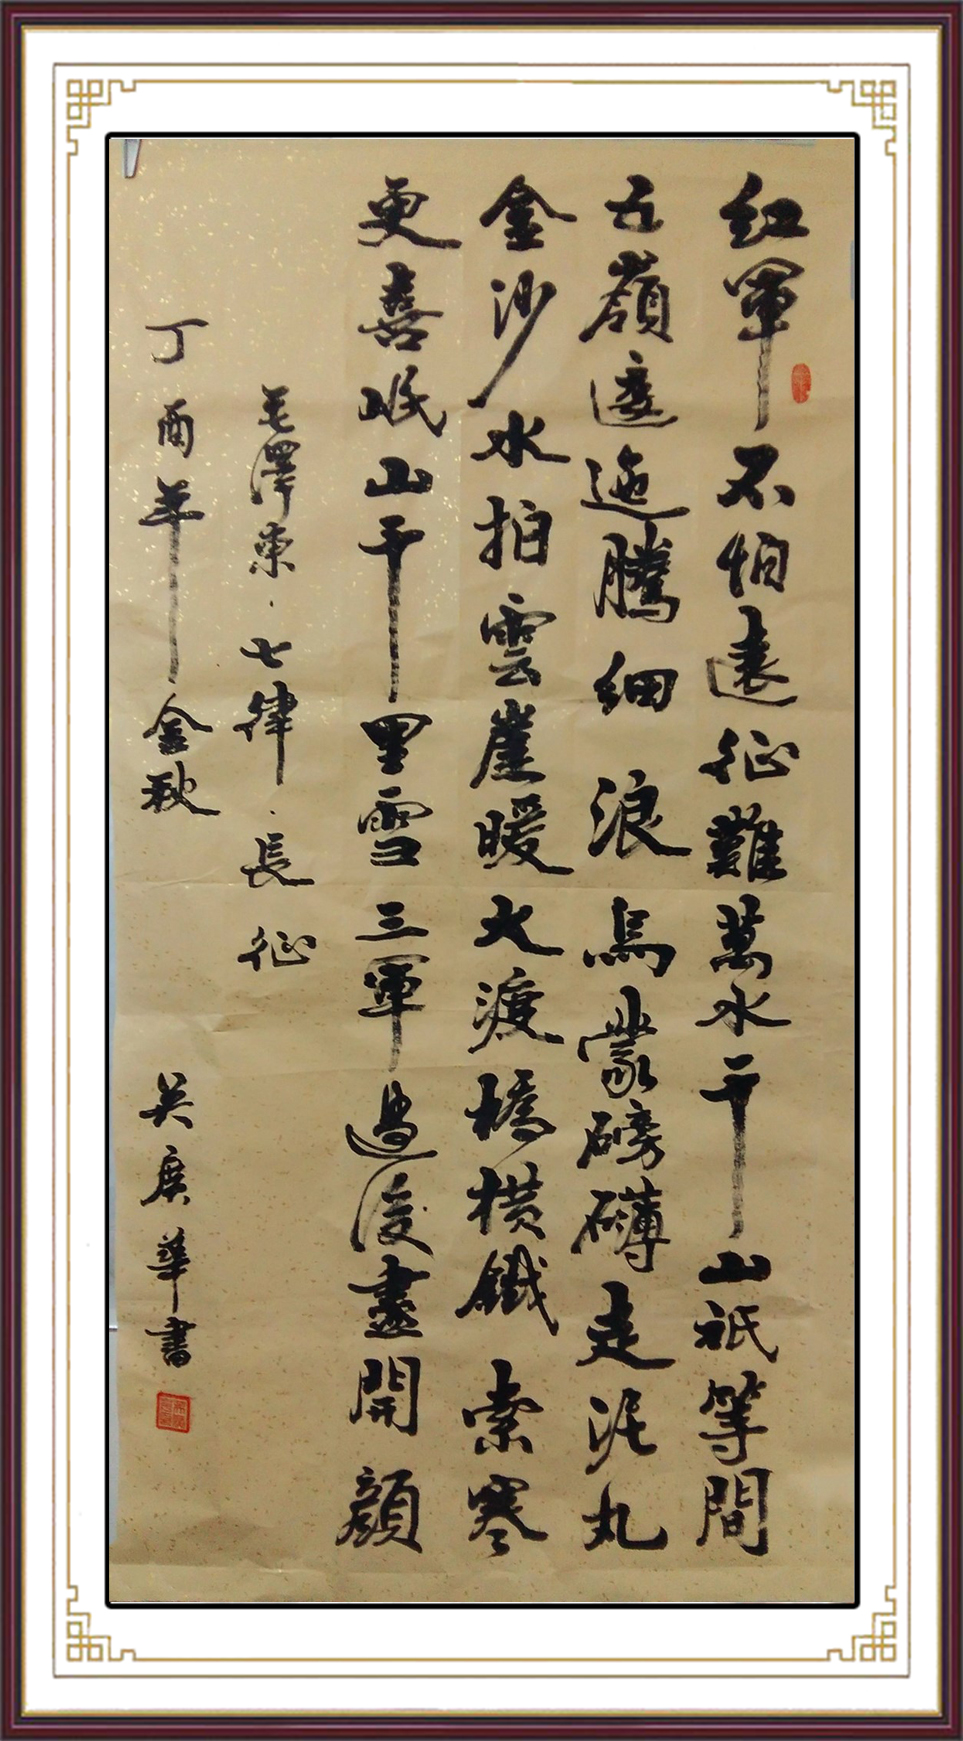 紅軍不怕遠征難萬水千山祇等間
五嶺逶迤騰細浪烏蒙磅礴走泥丸
金沙水拍雲崖暖大渡橋橫鐵索寒
更喜岷山千里雪三軍過後盡開顏
毛澤東·七律·長征
丁酉年金秋 吴廣華書